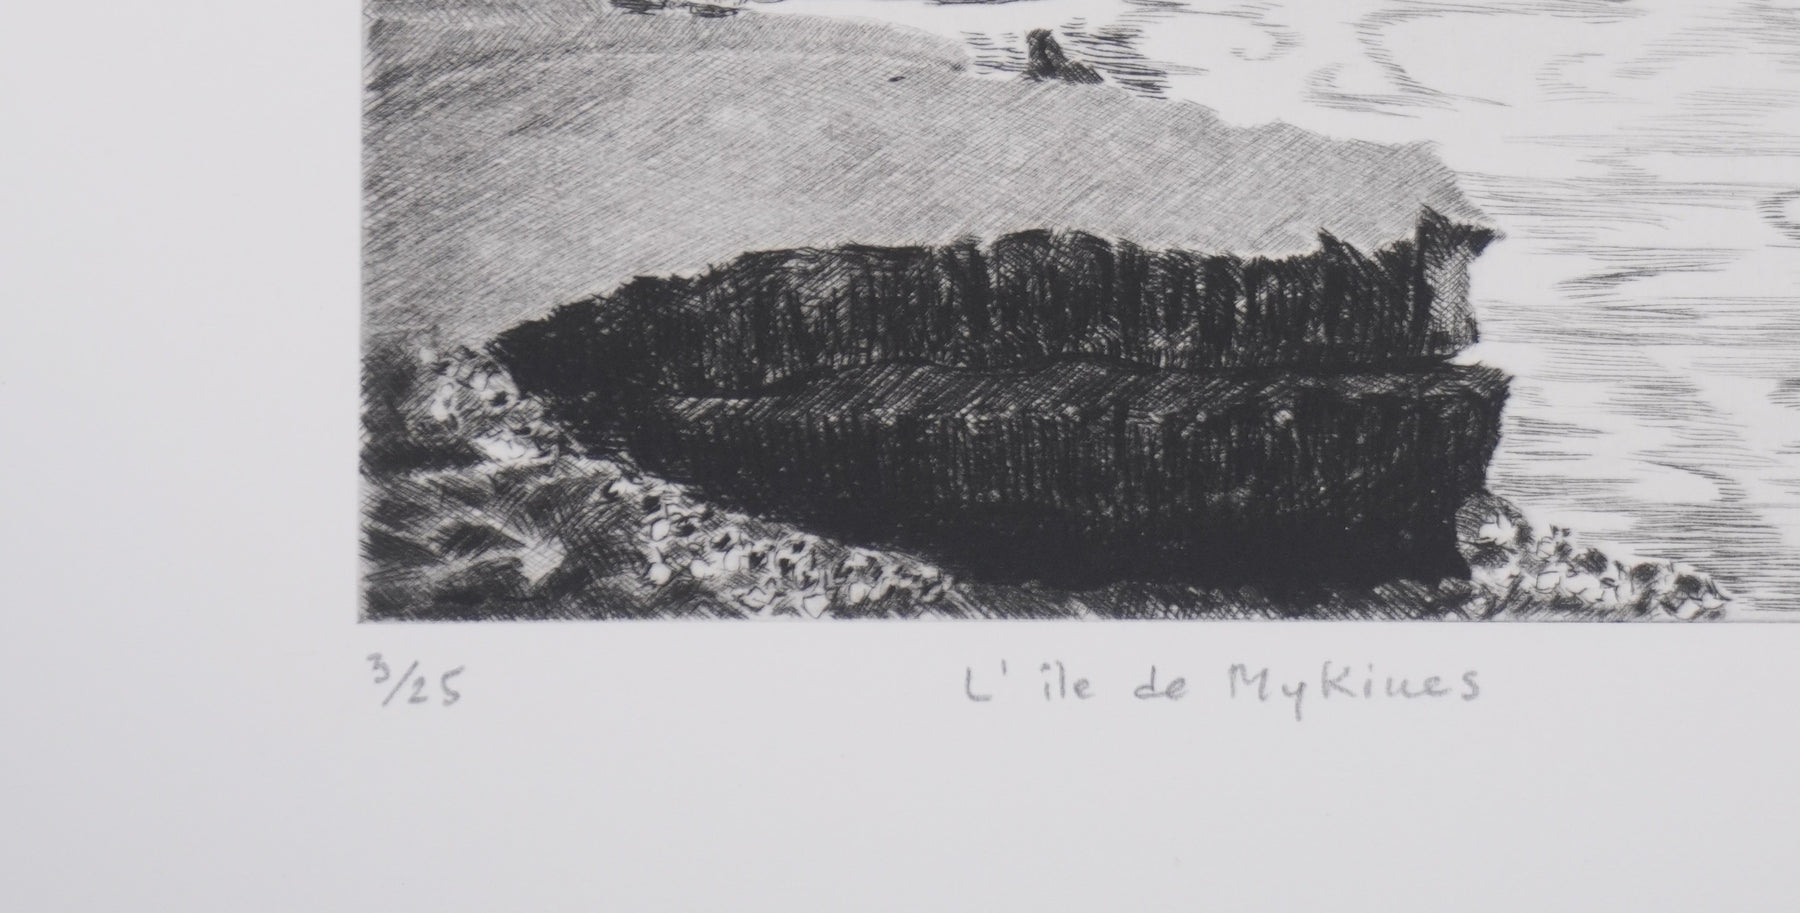 3/25 L' île de Mykines